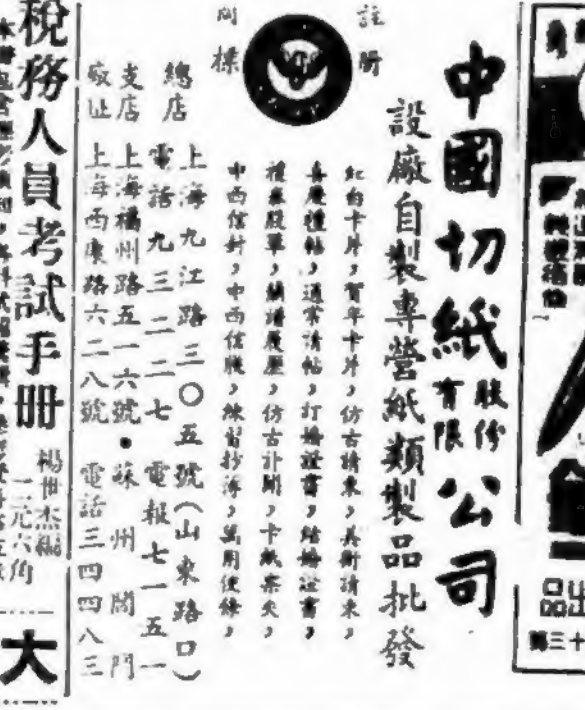 中國切紙股份有限公司
設廠自製專營紙類製品批發
註冊
商標
紅白卡片，賀年卡片，仿古請柬，美術請柬，
喜慶禮帖，通常請帖，訂婚證書，結婚證書，
禮券股單，仿古計聞，卡紙票夾，
中西信封，中西信牋，練習抄簿，萬用便條，
總店 上海九江路三〇五號(山東路口)
電話九三二二七 電報七一五一
支店 上海福州路五一六號·蘇州閶門
廠址 上海西康路六二八號 電話三四四八三
稅務人員考試手冊
楊世杰編
一元六角
大
第三十